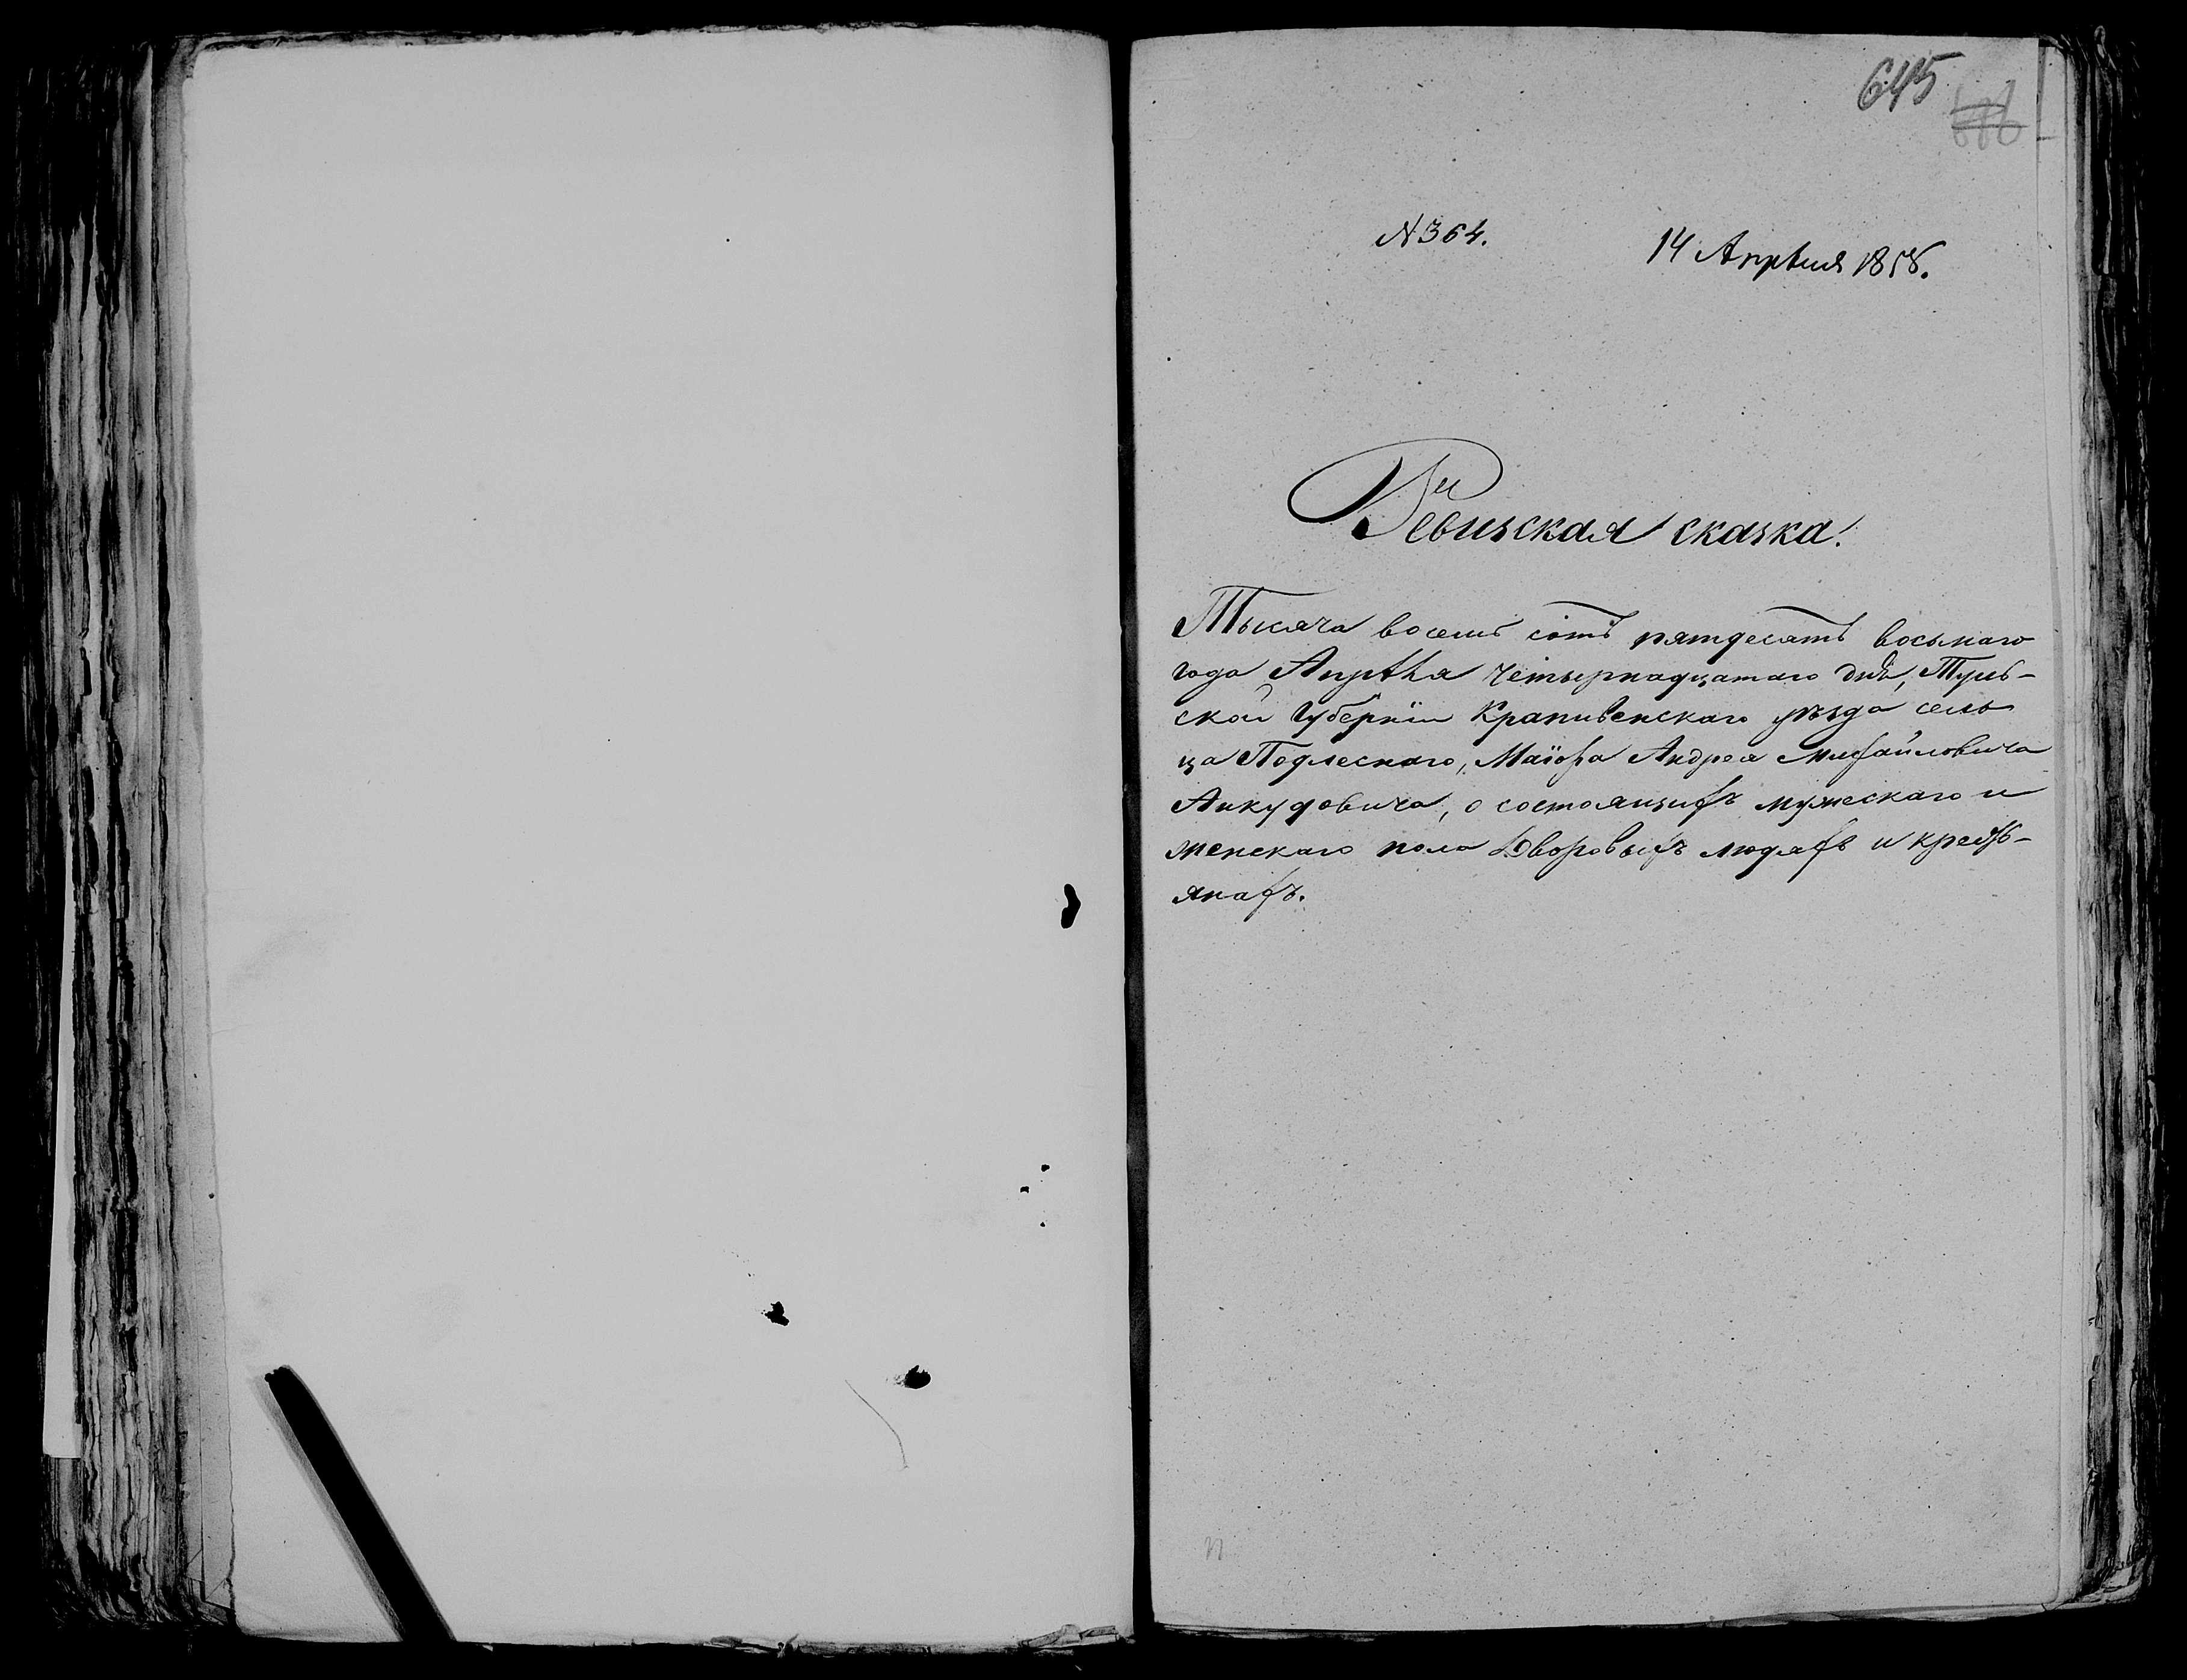 645
№ 364.
14 Апрѣля 1858.
Ревизская сказка!
Тысяча восемь сотъ пятдесятъ восьмаго
года Апрѣля четырнадцатаго дня, Туль-
ской Губернiи Крапивенскаго уѣзда сель
ца Подлеснаго, Маiора Андрея Михайловича
Анкудовича, о состоящихъ мужескаго и
женскаго пола Дворовыхъ людяхъ и кресть-
янахъ.